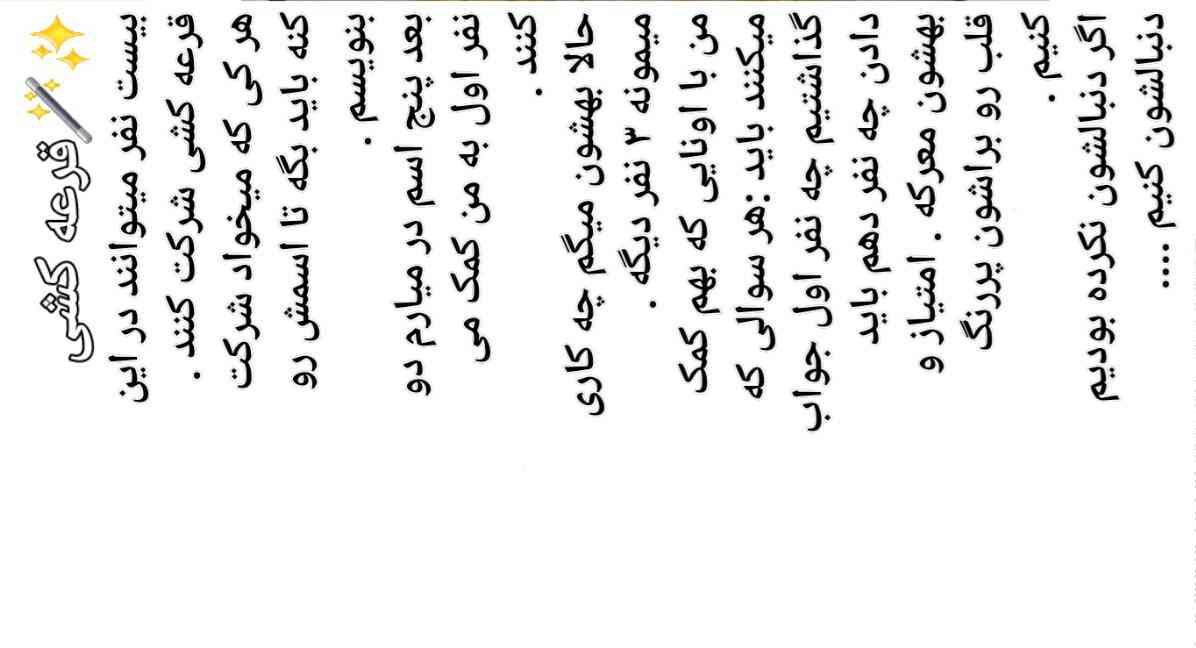 قرعه کشی
بیست نفر میتوانند در این
قرعه کشی شرکت کنند .
هر کی که میخواد شرکت
کنه باید بگه تا اسمش رو
بنویسم .
بعد پنج اسم در میارم دو
نفر اول به من کمک می
کنند .
حالا بهشون میگم چه کاری
میمونه ۳ نفر دیگه .
من با اونایی که بهم کمک
میکنند باید :هر سوالی که
گذاشتیم چه نفر اول جواب
دادن چه نفر دهم باید
بهشون معرکه . امتیاز و
قلب رو براشون پررنگ
کنیم .
اگر دنبالشون نکرده بودیم
دنبالشون کنیم ....